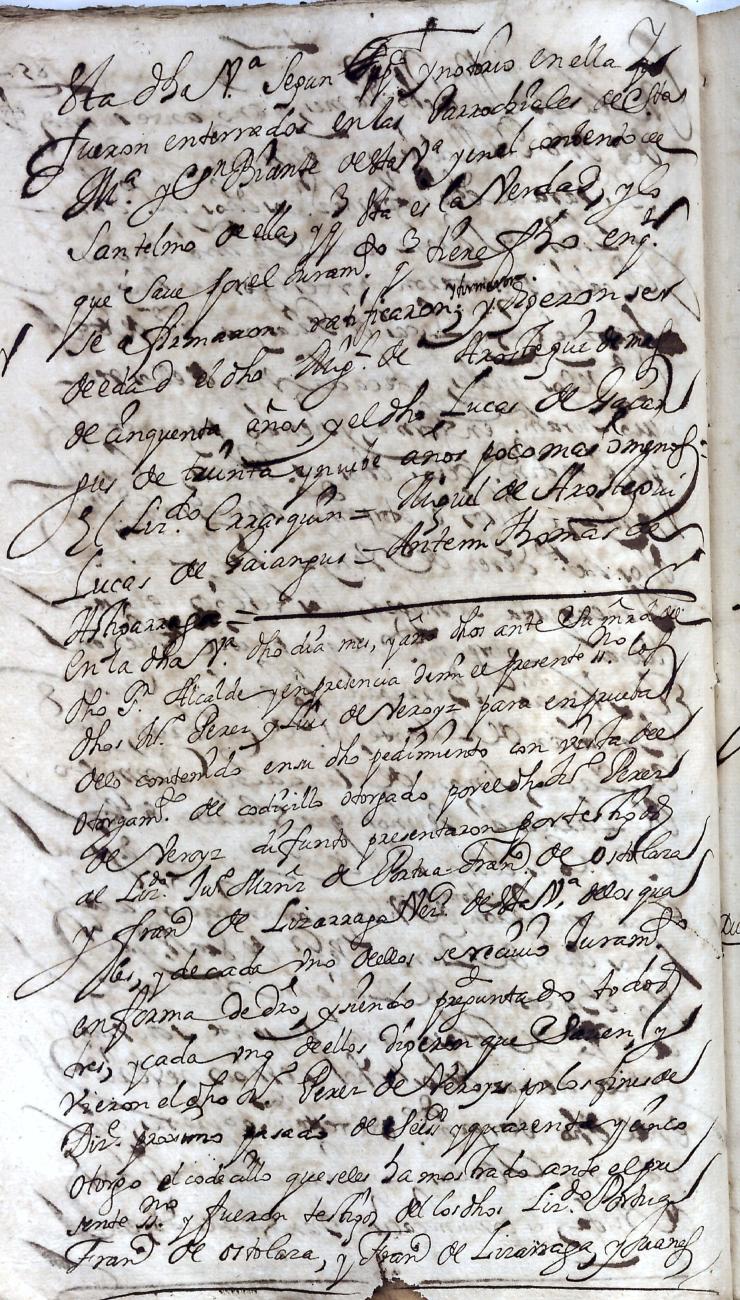 esta dha V.ª segun es pu.co y notorio en ella y
fueron enterrados en las Parrochiales de Sta
M.ª y Sn Biçente de esta V.ª y en el convento de
Santelmo de ella, y q esta es la Verdad, y lo
que save por el juram.to q dho tiene fho en q.
se afirmaron ratificaron, y firmaron y dijeron ser
de edad el dho Mig.l de Arostegui de mas
de cinquenta años, y el dho Lucas de Gaian
gus de treinta y nuebe años poco mas o menos:
El Liz.do Carrasquin = Miguel de Arostegui
Lucas de Gaiangus = Antemi Thomas de
Astiparraga =
En la dha V.ª dho dia mes, y año dhos ante su mrd de
dho S.r Alcalde y en presencia de mi el presente ss.no los
dhos Ju.s Perez y Luis de Veroyz para en prueba
de lo contenido en su dho pedimiento con vista del
otorgam.to del codiçillo otorgado por el dho Ju.s Perez
de Veroyz difunto presentaron por testigos
al Liz.do Ju.s Martz de Portua Fran.co de Ostolaza
y Fran.co de Lizarraga Vez.s de esta V.ª de los qua
les, y de cada uno de ellos se recivio Juram.to
en forma de dro, y siendo preguntados todos
tres, y cada uno de ellos dijeron que Saven, y
vieron el dho Ju.s Perez de Veroyz por los fines de
Diz.e proximo pasado de seisç.s y quarenta y cinco
otorgo el codecillo que se les ha mostrado ante el pre
sente ss.no y fueron testigos del los dhos Liz.do Portua
Fran.co de ostolaza, y Fran.co de Lizarraga, y Juanes